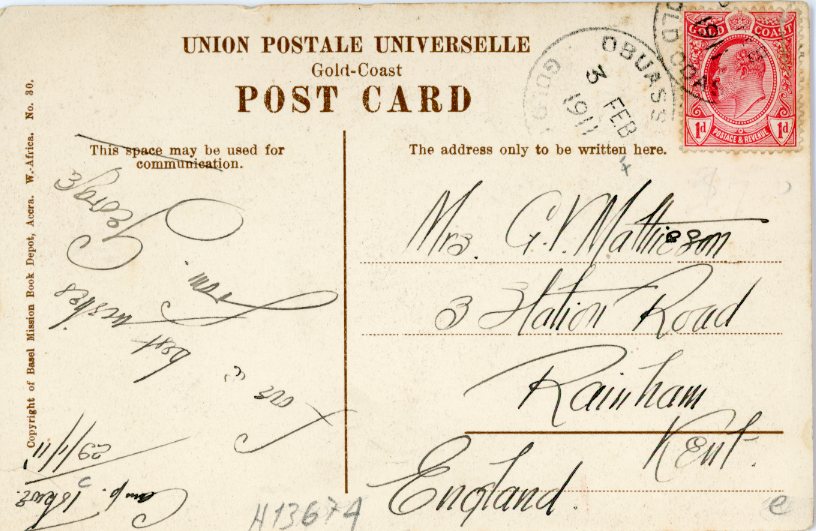 UNION POSTALE UNIVERSELLE
Gold-Coast
POST CARD
This space may be used for
communication.
The address only to be written here.
Copyright of Basel Mission Book Depot, Accra. W.-Africa. No. 30.
OBUASSI
3 FEB
1911
GOLD COAST
POSTAGE & REVENUE
1d 1d
Mrs. G. V. Mathieson
3 Station Road
Rainham
Kent.
England.
Camp.
29/1/11
Love &
best wishes
from
George
H13674
e